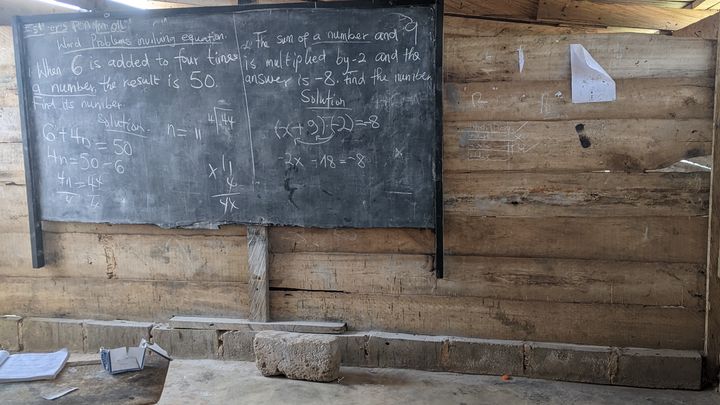 Word Problems involving equation.
When 6 is added to four times
a number, the result is 50.
Find its number
Solution.
6 + 4n = 50
4n = 50 - 6
n = 11
The sum of a number and 9
is multiplied by -2 and the
answer is -8. Find the number
Solution
(x + 9)(-2) = -8
-2x - 18 = -8